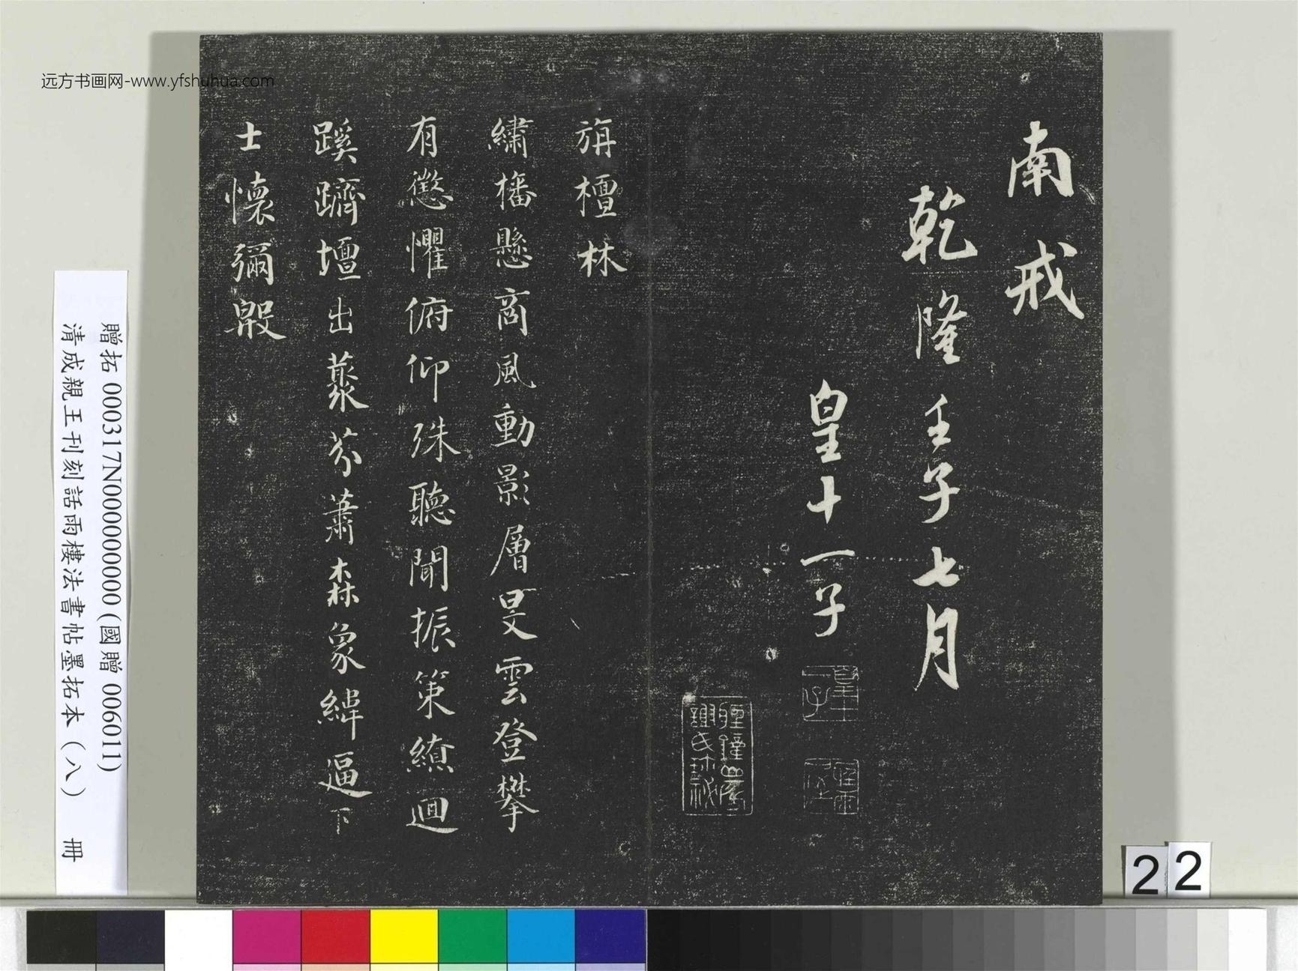 远方书画网-www.yfshuhua.com
南戒
乾隆壬子七月
皇十一子
旃檀林
繡幡懸商風動影層旻雲登攀
有懲懼俯仰殊聽聞振策繚迴
蹊躋壇出蓊芬蕭森象緯逼下
士懷彌殷
贈拓 000317N000000000 (國贈 006011)
清成親王刊刻話雨樓法書帖墨拓本（八） 冊
22